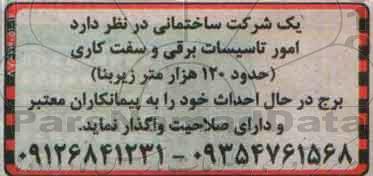 یک شرکت ساختمانی در نظر دارد
امور تاسیسات برقی و سفت کاری
(حدود ۱۲۰ هزار متر زیربنا)
برج در حال احداث خود را به پیمانکاران معتبر
و دارای صلاحیت واگذار نماید.
۰۹۱۲۶۸۴۱۲۳۱ - ۰۹۳۵۴۷۶۱۵۶۸
ParsNamadData